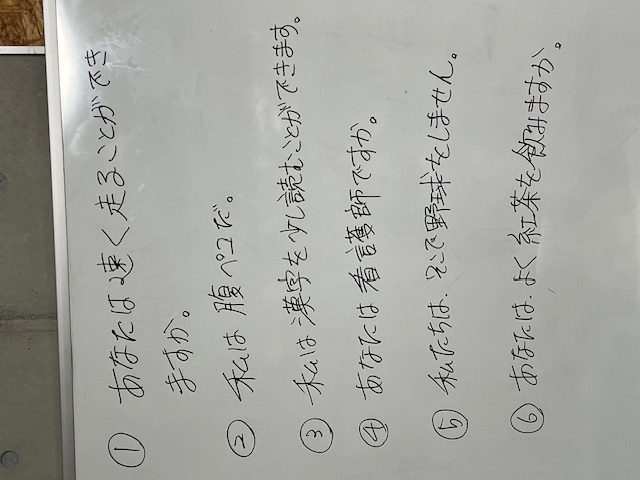 ① あなたは速く走ることができ
ますか。
② 私は腹ペコだ。
③ 私は漢字を少し読むことができます。
④ あなたは看護師ですか。
⑤ 私たちは、そこで野球をしません。
⑥ あなたは、よく紅茶を飲みますか。